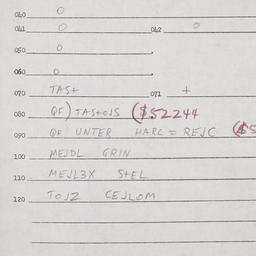 040 0
041 0 042 0
050 0
060 0
070 TASt 071 t
080 QF) TAStOJS ($52244
090 QF UNTER HARC = REJC ($5
100 MEJDL GRIN
110 MEJL3X StEL
120 TOJZ CEJLOM